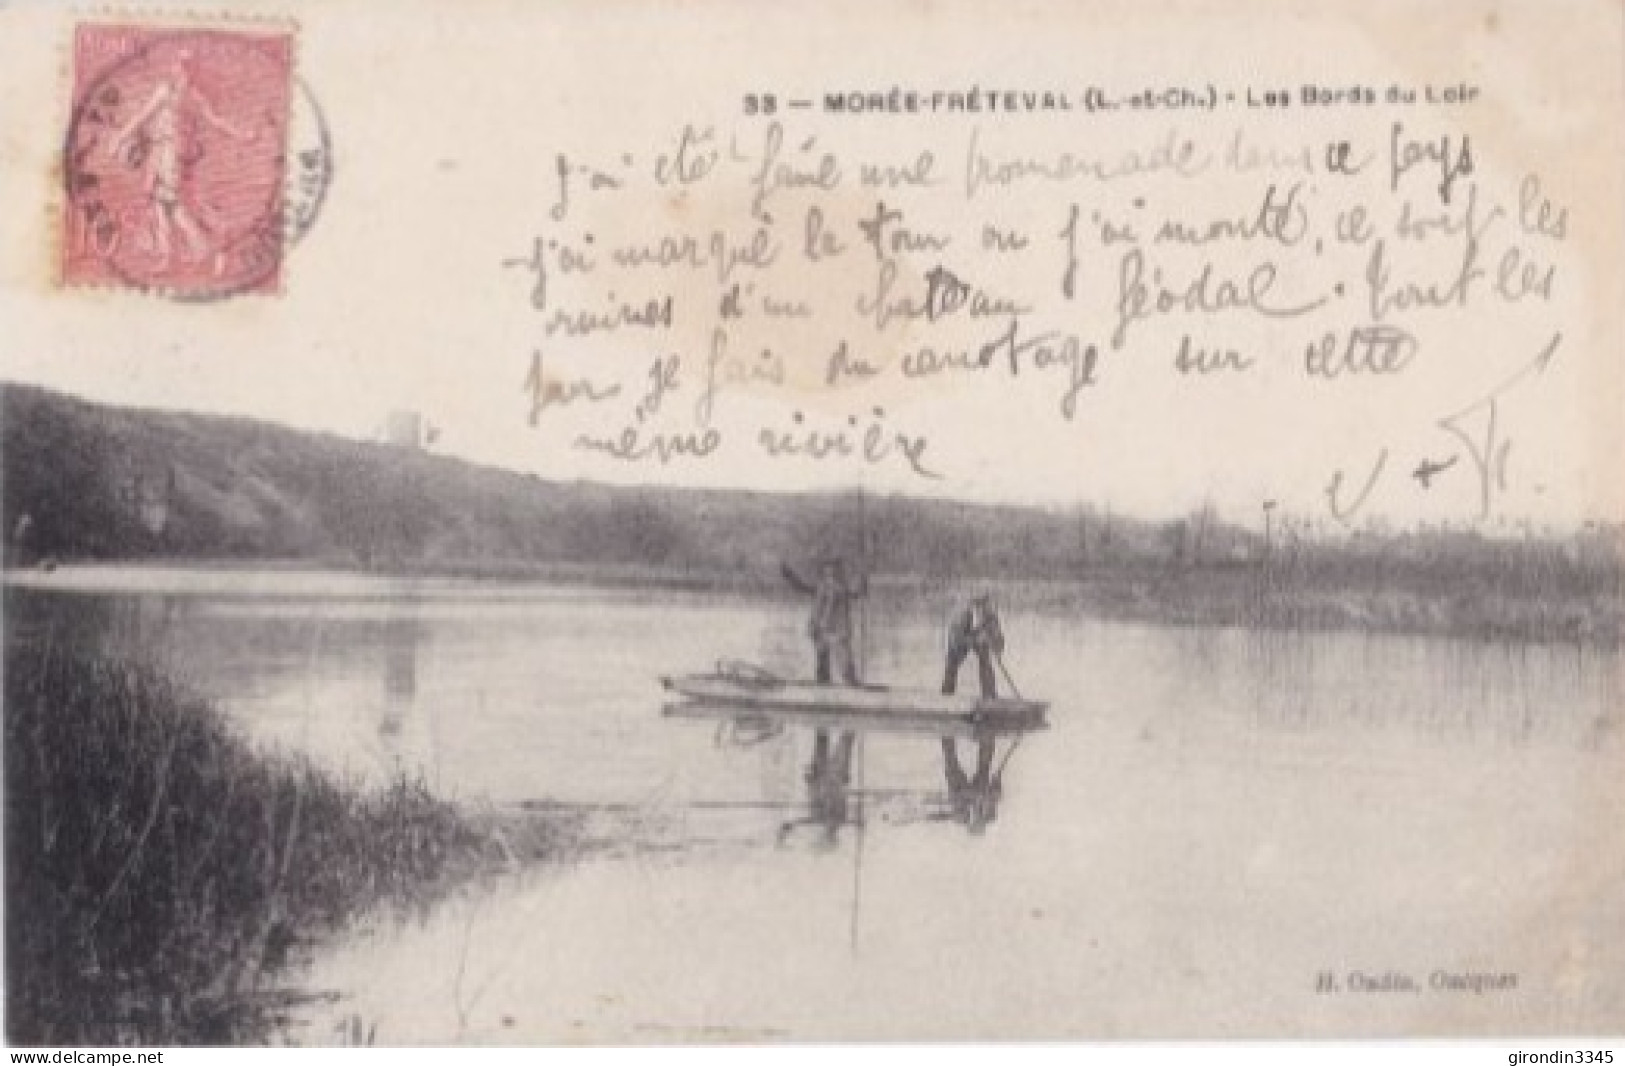 33 — MORÉE-FRÉTEVAL (L.-et-Ch.) - Les Bords du Loir
J'ai été faire une promenade dans ce pays
j'ai marqué la tour ou j'ai monté, ce sont les
ruines d'un chateau féodal. Tout les
jour je fais du canotage sur cette
même rivière
H. Oudin, Oucques
www.delcampe.net
girondin3345